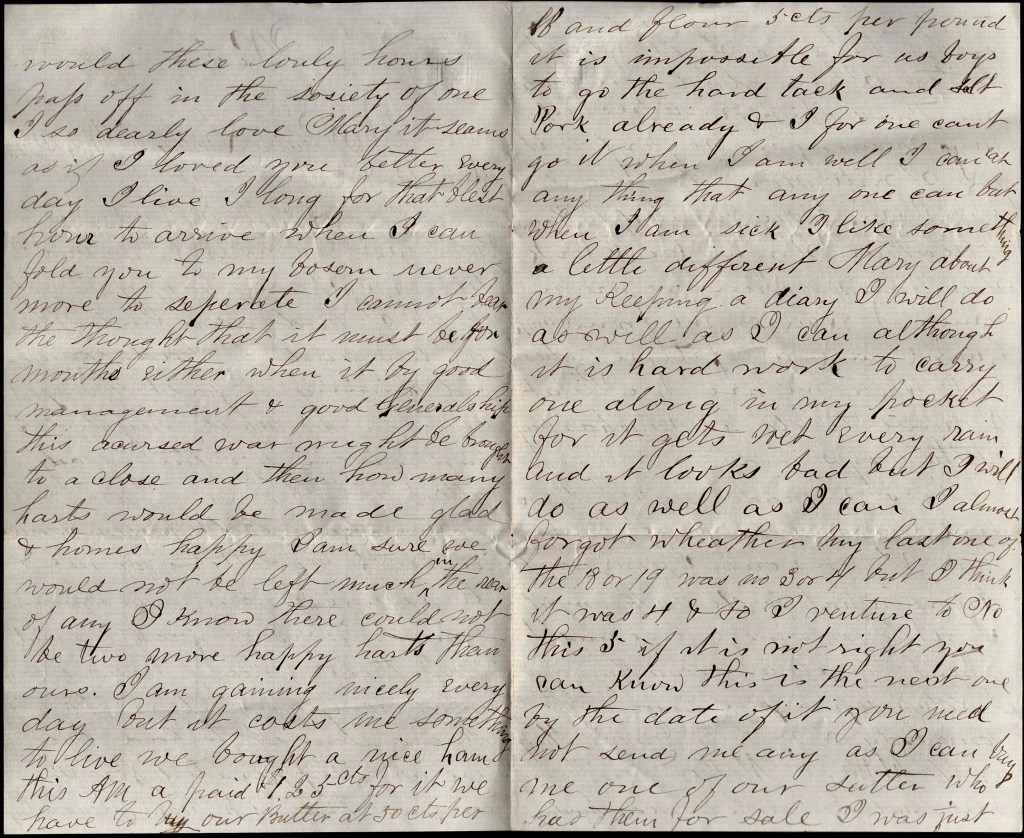 would these lonly hours
pass off in the sosiety of one
I so dearly love Mary it seams
as if I loved you better every
day I live I long for that blest
hour to arrive when I can
fold you to my bosem never
more to seperate I cannot bear
the thought that it must be for
months either when it by good
management & good Generalship
this acursed war might be brought
to a close and then how many
harts would be made glad
& homes happy I am sure we
would not be left much in the rear
of any I know there could not
be two more happy harts than
ours. I am gaining nicely every
day but it costs me something
to live we bought a nice ham
this AM a paid $1,25cts for it we
have to buy our Butter at 50 cts per
lb and flour 5 cts per pound
it is impossible for us boys
to go the hard tack and salt
Pork already & I for one cant
go it when I am well I can eat
any thing that any one can but
when I am sick I like something
a little different Mary about
my Keeping a diary I will do
as well as I can although
it is hard work to carry
one along in my pocket
for it gets wet every rain
and it looks bad but I will
do as well as I can I almost
forgot wheather my last one of
the 18 or 19 was no 3 or 4 but I think
it was 4 & so I venture to No
this 5 if it is not right you
can Know this is the next one
by the date of it you need
not send me any as I can buy
me one of our sutler who
has them for sale I was just